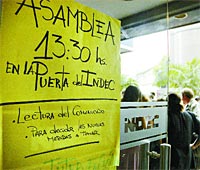 ASAMBLEA
13:30 hs.
EN LA
PUERTA DEL INDEC
LECTURA DEL COMUNICADO
- PARA DECIDIR LAS NUEVAS
MEDIDAS A TOMAR
INDEC